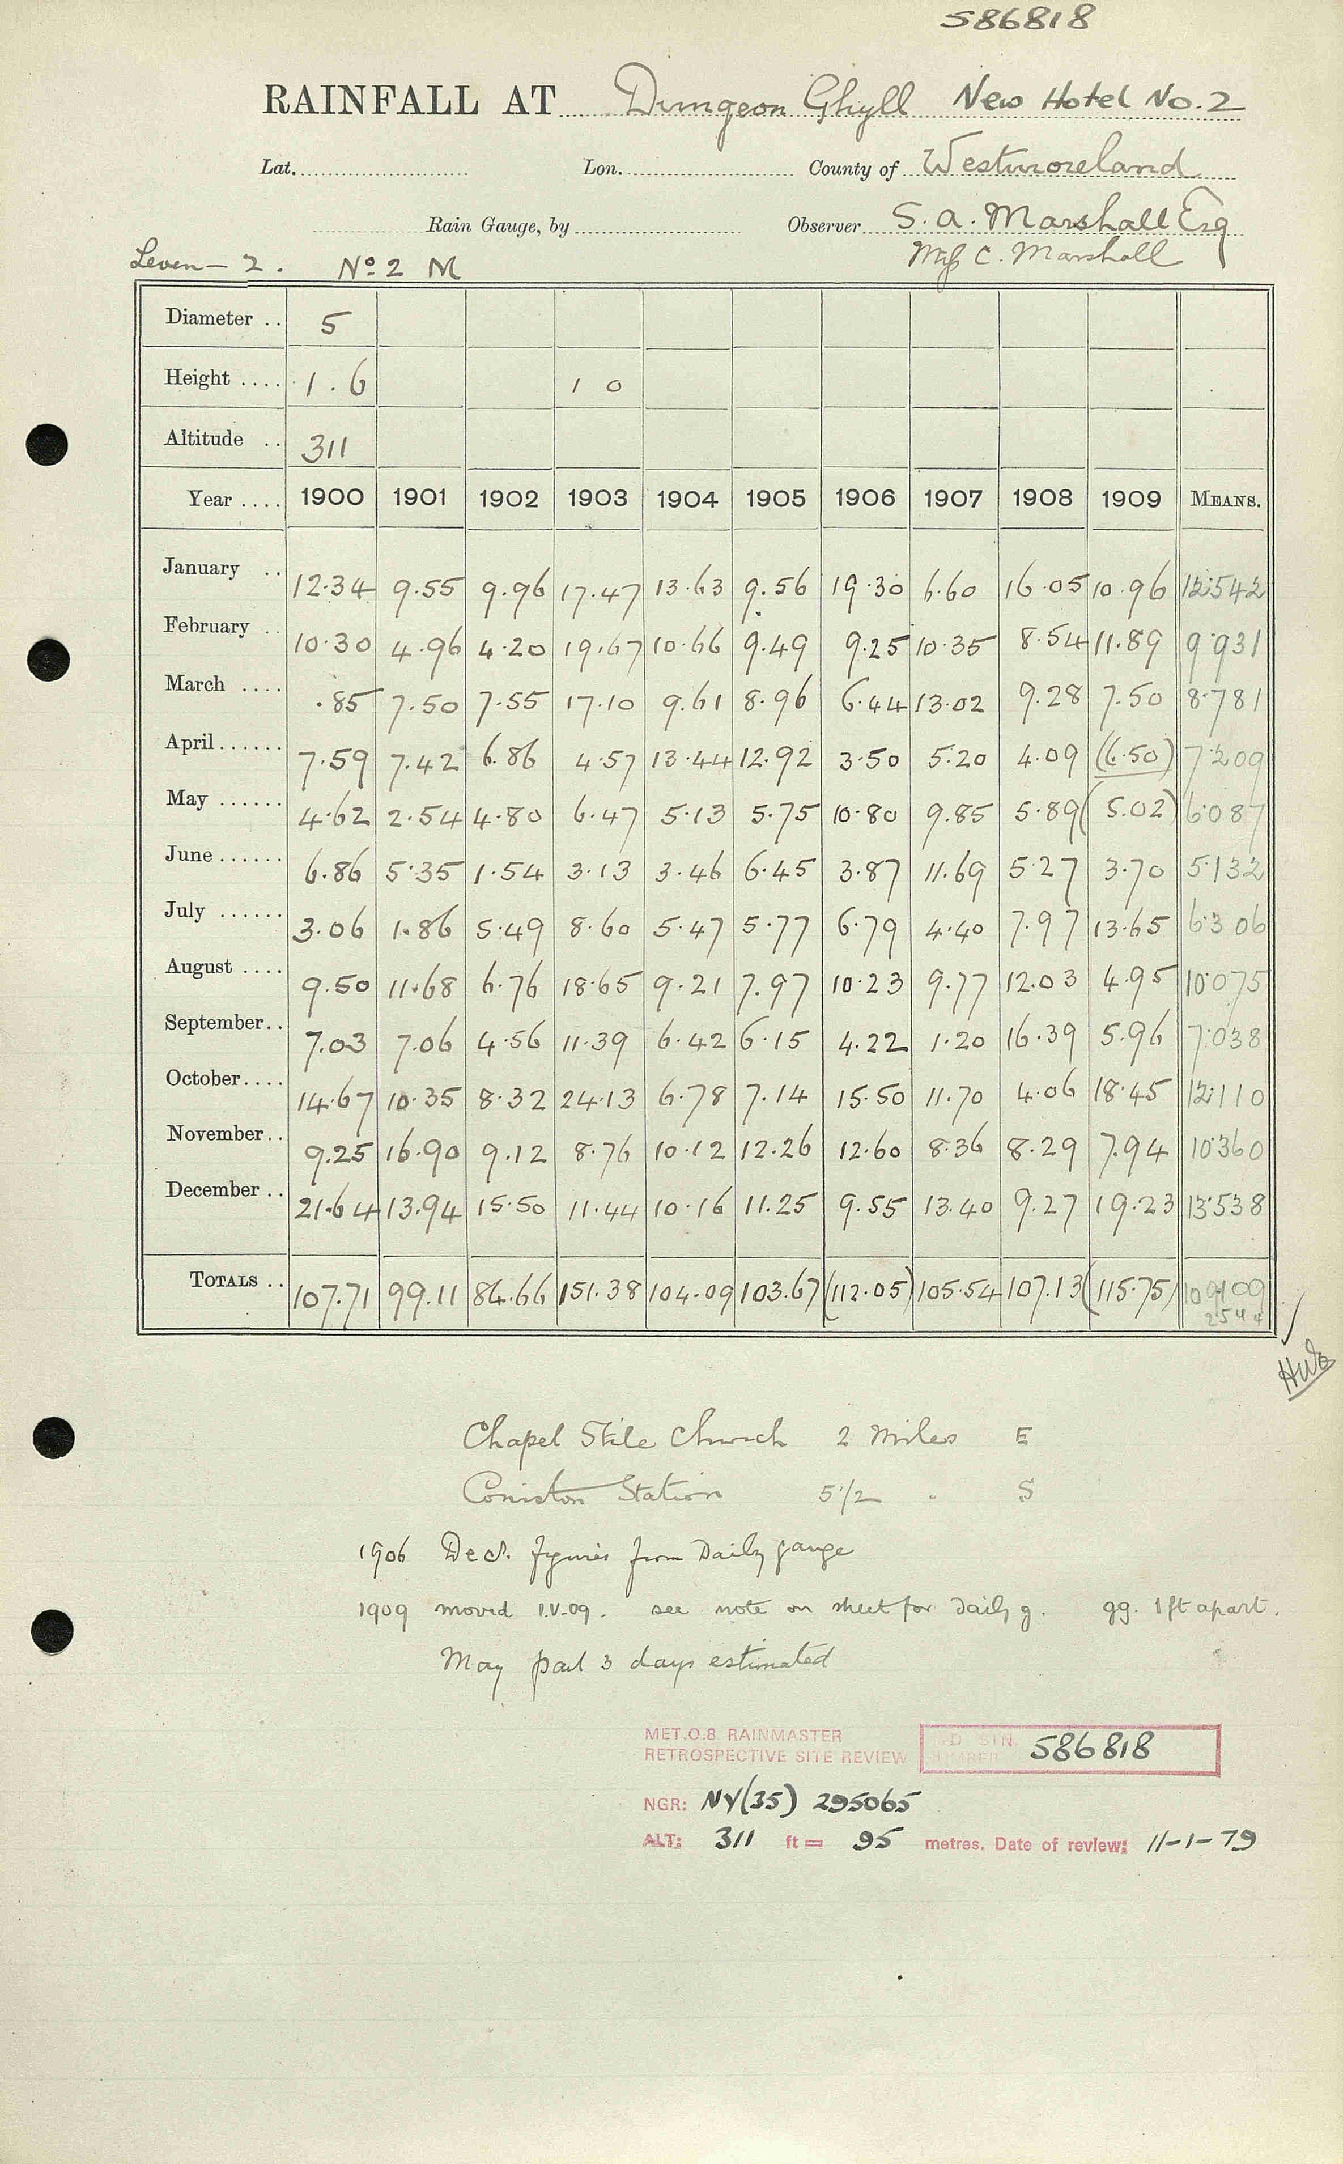 586818
RAINFALL AT Dungeon Ghyll New Hotel No. 2
Lat. Lon. County of Westmoreland
Rain Gauge, by Observer S. A. Marshall Esq
Leven - 2. No 2 M Miss C. Marshall
Diameter .. 5
Height .... 1.6 1 0
Altitude .. 311
Year .... 1900 1901 1902 1903 1904 1905 1906 1907 1908 1909 MEANS.
January .. 12.34 9.55 9.96 17.47 13.63 9.56 19.30 6.60 16.05 10.96 12.542
February .. 10.30 4.96 4.20 19.67 10.66 9.49 9.25 10.35 8.54 11.89 9.931
March .... .85 7.50 7.55 17.10 9.61 8.96 6.44 13.02 9.28 7.50 8.781
April...... 7.59 7.42 6.86 4.57 13.44 12.92 3.50 5.20 4.09 (6.50) 7.209
May ...... 4.62 2.54 4.80 6.47 5.13 5.75 10.80 9.85 5.89 (5.02) 6.087
June ...... 6.86 5.35 1.54 3.13 3.46 6.45 3.87 11.69 5.27 3.70 5.132
July ...... 3.06 1.86 5.49 8.60 5.47 5.77 6.79 4.40 7.97 13.65 6.306
August .... 9.50 11.68 6.76 18.65 9.21 7.97 10.23 9.77 12.03 4.95 10.075
September.. 7.03 7.06 4.56 11.39 6.42 6.15 4.22 1.20 16.39 5.96 7.038
October.... 14.67 10.35 8.32 24.13 6.78 7.14 15.50 11.70 4.06 18.45 12.110
November.. 9.25 16.90 9.12 8.76 10.12 12.26 12.60 8.36 8.29 7.94 10.360
December .. 21.64 13.94 15.50 11.44 10.16 11.25 9.55 13.40 9.27 19.23 13.538
TOTALS .. 107.71 99.11 84.66 151.38 104.09 103.67 (112.05) 105.54 107.13 (115.75)
Chapel Stile Church 2 Miles E
Coniston Station 5 1/2 " S
1906 Decr. figures from Daily gauge
1909 moved 1.V.09. see note on sheet for daily g. gg. 1 ft apart.
May part 3 days estimated
MET.O.8 RAINMASTER
RETROSPECTIVE SITE REVIEW 586818
NGR: NY(35) 295065
ALT: 311 ft = 95 metres. Date of review: 11-1-79